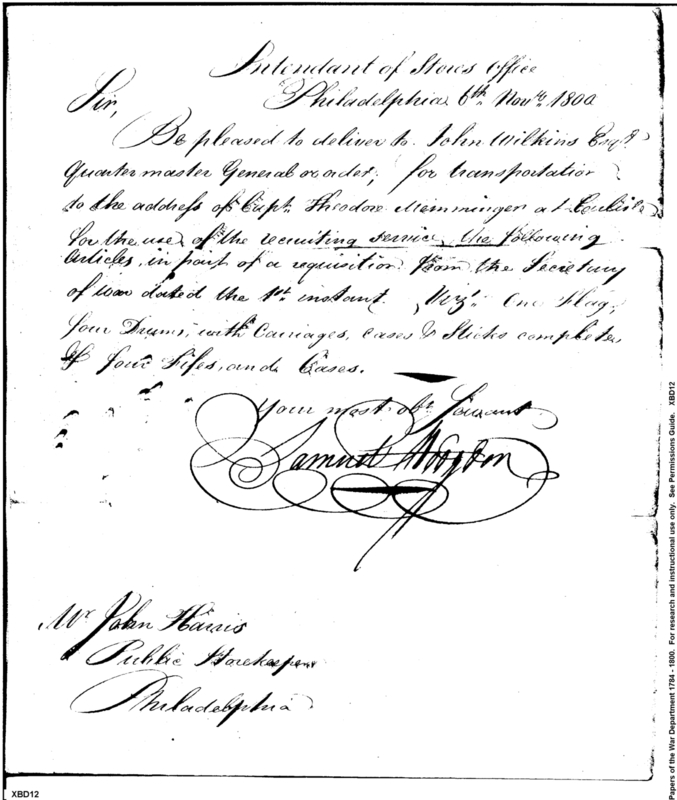 Intendant of Stores Office
Philadelphia 6th. Novbr. 1800
Sir,
Be pleased to deliver to John Wilkins Esqr.
Quartermaster General or order, for transportation
to the address of Capt. Theodore Memminger at Carlisle
for the use of the recruiting service, the following
articles, in part of a requisition from the Secretary
of war dated the 1st. instant. Vizt. One Flag,
four Drums, with Carriages, cases & Sticks complete,
& four Fifes, and Cases.
Your most obt. Servant
Samuel Hodgdon
Mr. John Harris
Public Storekeeper
Philadelphia
XBD12
Papers of the War Department 1784 - 1800. For research and instructional use only. See Permissions Guide. XBD12